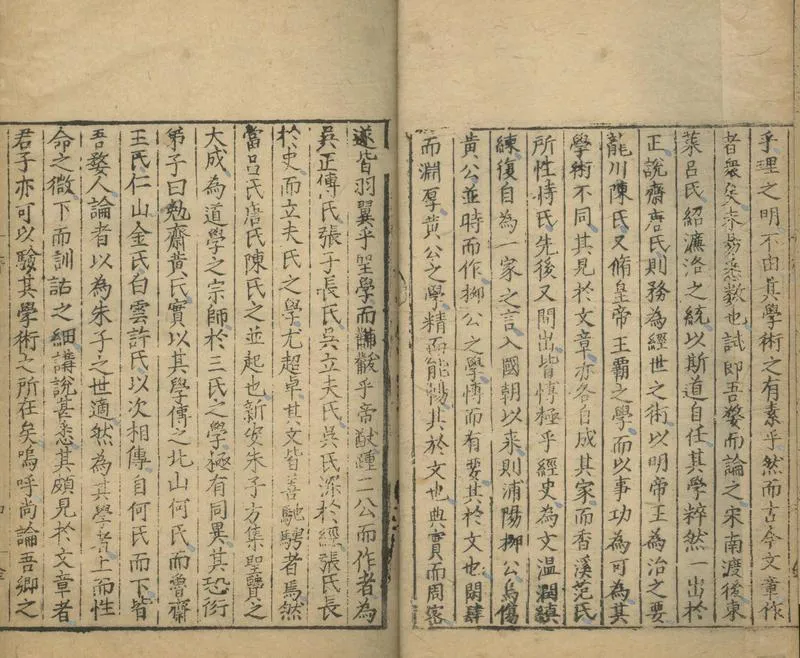 乎理之明不由其學術之有素乎然而古今文章作
者衆矣未易悉數也試即吾婺而論之宋南渡後東
萊呂氏紹濂洛之統以斯道自任其學粹然一出於
正說齋唐氏則務為經世之術以明帝王為治之要
龍川陳氏又脩皇帝王霸之學而以事功為可為其
學術不同其見於文章亦各自成其家而香溪范氏
所性時氏先後又間出皆博極乎經史為文溫潤縝
練復自為一家之言入國朝以來則浦陽柳公烏傷
黃公並時而作柳公之學博而有要其於文也閎肆
而淵厚黃公之學精而能暢其於文也典實而周密
遂皆羽翼乎聖學而黼黻乎帝猷踵二公而作者為
吳正傳氏張子長氏吳立夫氏吳氏深於經張氏長
於史而立夫氏之學尤超卓其文皆善馳騁者焉然
當呂氏唐氏陳氏之並起也新安朱子方集聖賢之
大成為道學之宗師於三氏之學極有同異其恐衍
弟子曰勉齋黃氏實以其學傳之北山何氏而魯齋
王氏仁山金氏白雲許氏以次相傳自何氏而下皆
吾婺人論者以為朱子之世適然為其學者上而性
命之微下而訓詁之細講說甚悉其頗見於文章者
君子亦可以驗其學術之所在矣嗚呼尚論吾鄉之